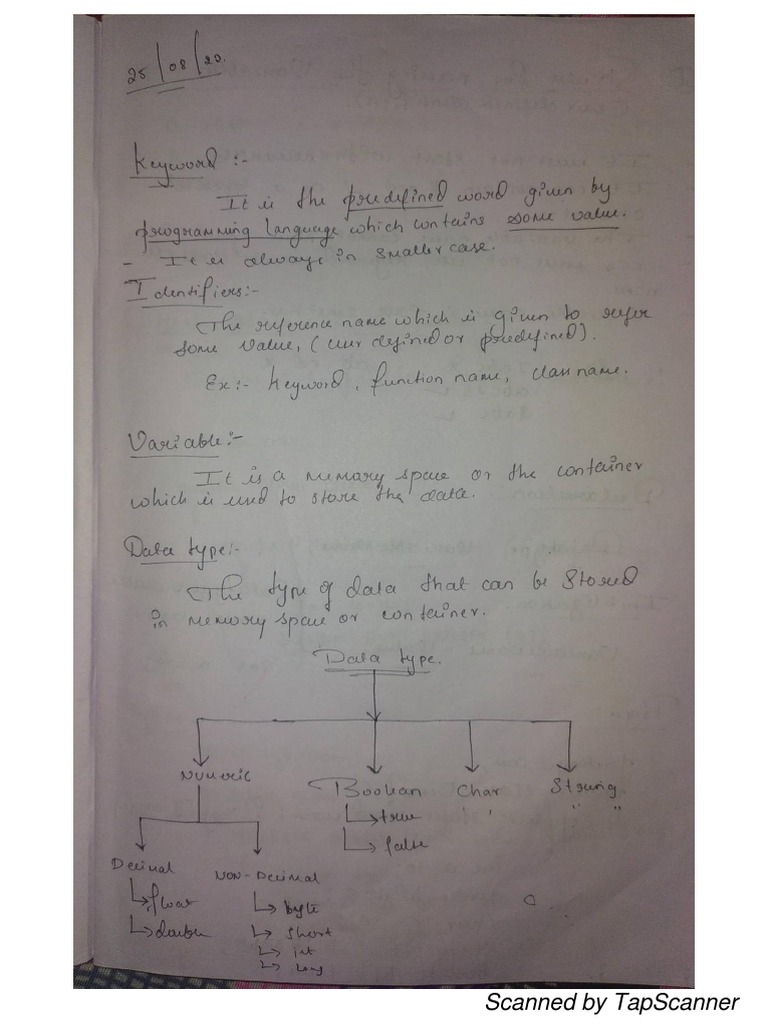 25/08/20.
Keyword :-
It is the predefined word given by
programming language which contains some value.
- It is always in smaller case.
Identifiers:-
The reference name which is given to refer
some value, (user defined or predefined).
Ex:- Keyword, function name, class name.
Variable:-
It is a memory space or the container
which is used to store the data.
Data type:-
The type of data that can be stored
in memory space or container.
Data type.
Numeric Boolean Char String
' " "
true
false
Decimal NON-Decimal
float byte
double short
int
long
Scanned by TapScanner